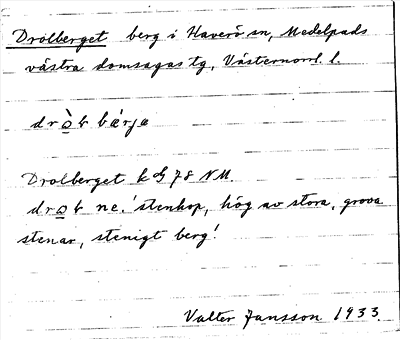 Drolberget berg i Haverö sn, Medelpads
västra domsagas tg, Västernorrl. l.
drò̲ƚ bærjə
Drolberget k bl 78 NM.
dro̲ƚ ne. 'stenhop, hög av stora, grova
stenar, stenigt berg'.
Valter Jansson 1933.